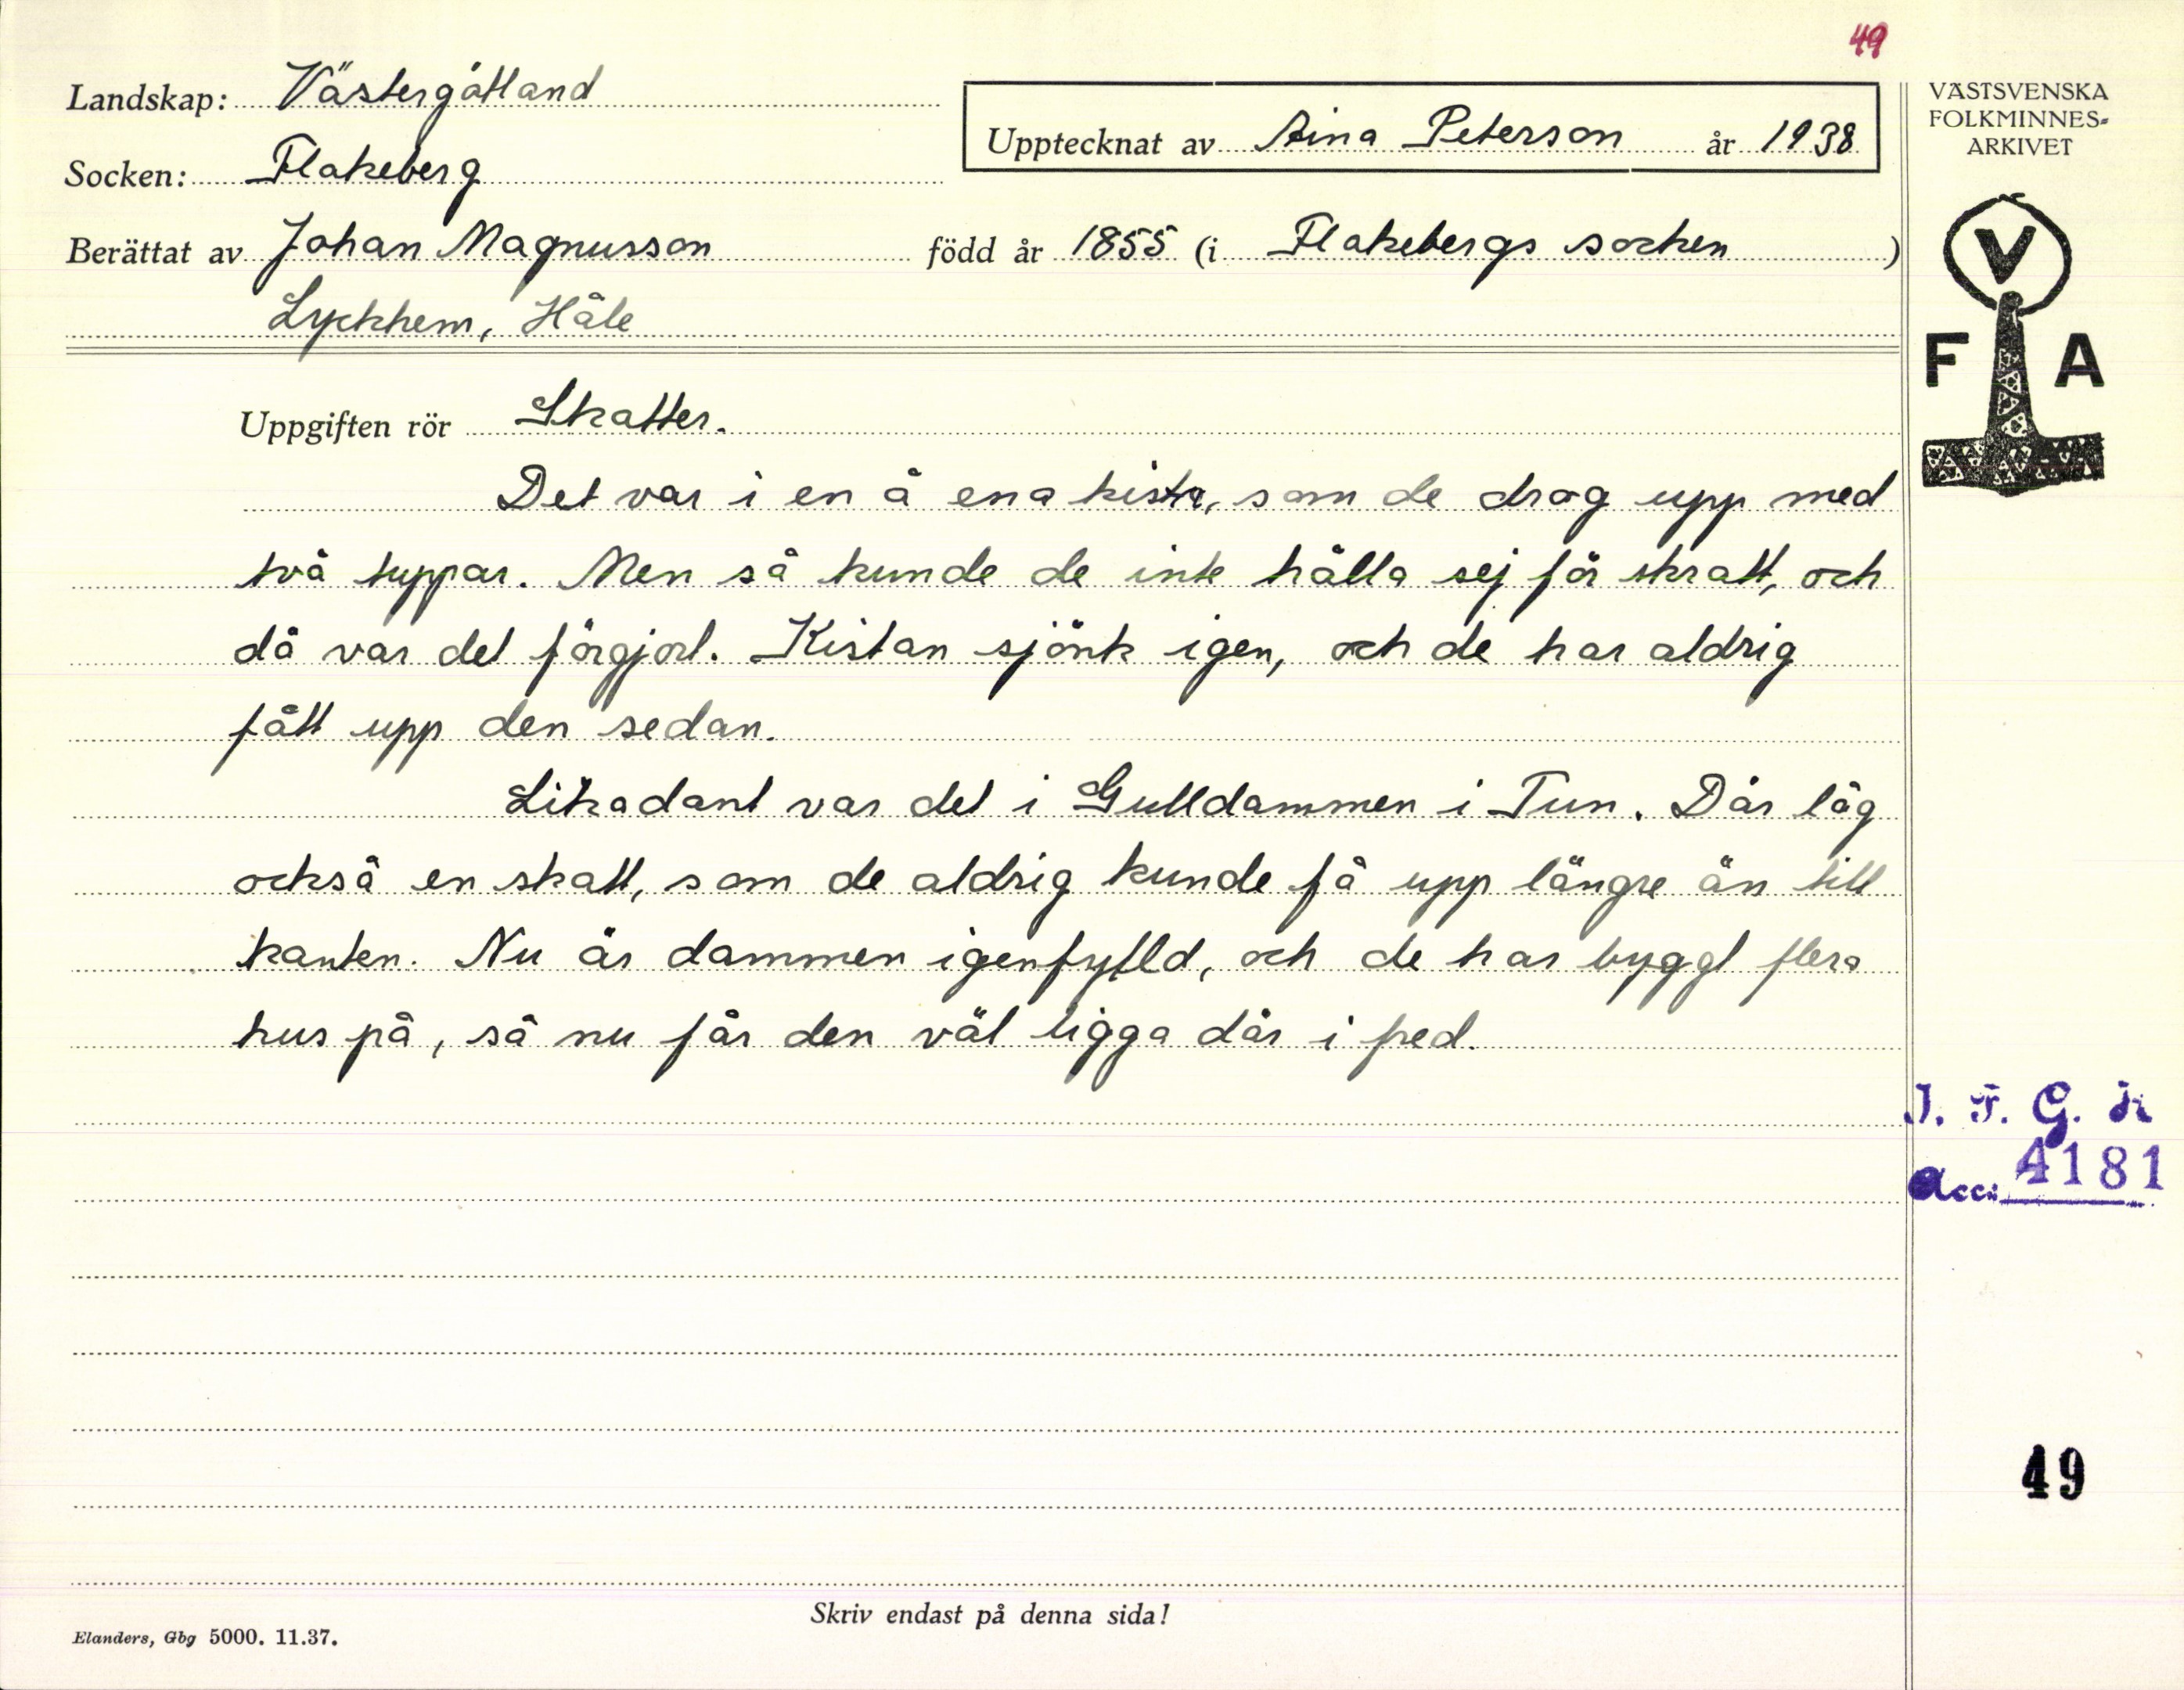 49
Landskap: Västergötland
Upptecknat av Aina Peterson år 1938
Socken: Flakeberg
Berättat av Johan Magnusson född år 1855 (i Flakebergs socken)
Lyckhem, Håle
VÄSTSVENSKA
FOLKMINNES-
ARKIVET
V
F A
Uppgiften rör Skatter.
Det var i en å ena kista, som de drog upp med
två tuppar. Men så kunde de inte hålla sej för skratt, och
då var det förgjort. Kistan sjönk igen, och de har aldrig
fått upp den sedan.
Likadant var det i Gulldammen i Tun. Där låg
också en skatt, som de aldrig kunde få upp längre än till
kanten. Nu är dammen igenfylld, och de har byggt flera
hus på, så nu får den väl ligga där i fred.
I. F. G. H
Acc: 4181
49
Skriv endast på denna sida!
Elanders, Gbg 5000. 11.37.